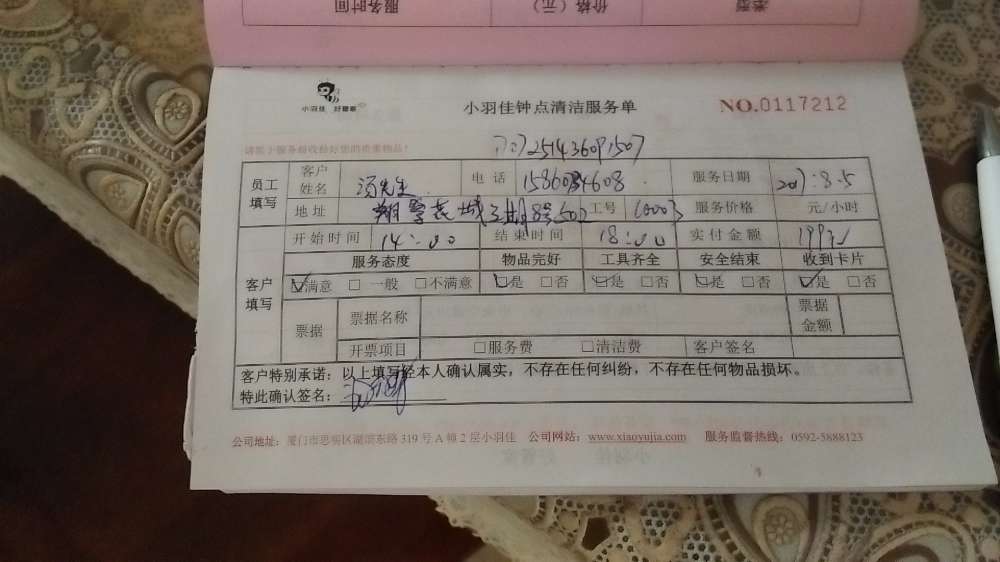 类型 价格（元） 服务时间
小羽佳 好管家
小羽佳钟点清洁服务单
NO.0117212
员工填写 客户姓名 汤先生 电话 服务日期 2017.8.5
地址 工号 服务价格 元/小时
开始时间 14:00 结束时间 18:00 实付金额
客户填写 服务态度 物品完好 工具齐全 安全结束 收到卡片
☑满意 □一般 □不满意 ☑是 □否 ☑是 □否 ☑是 □否 ☑是 □否
票据 票据名称 票据金额
开票项目 □服务费 □清洁费 客户签名
客户特别承诺：以上填写经本人确认属实，不存在任何纠纷，不存在任何物品损坏。
特此确认签名：
公司地址：厦门市思明区湖滨东路319号A幢2层小羽佳 公司网站：www.xiaoyujia.com 服务监督热线：0592-5888123